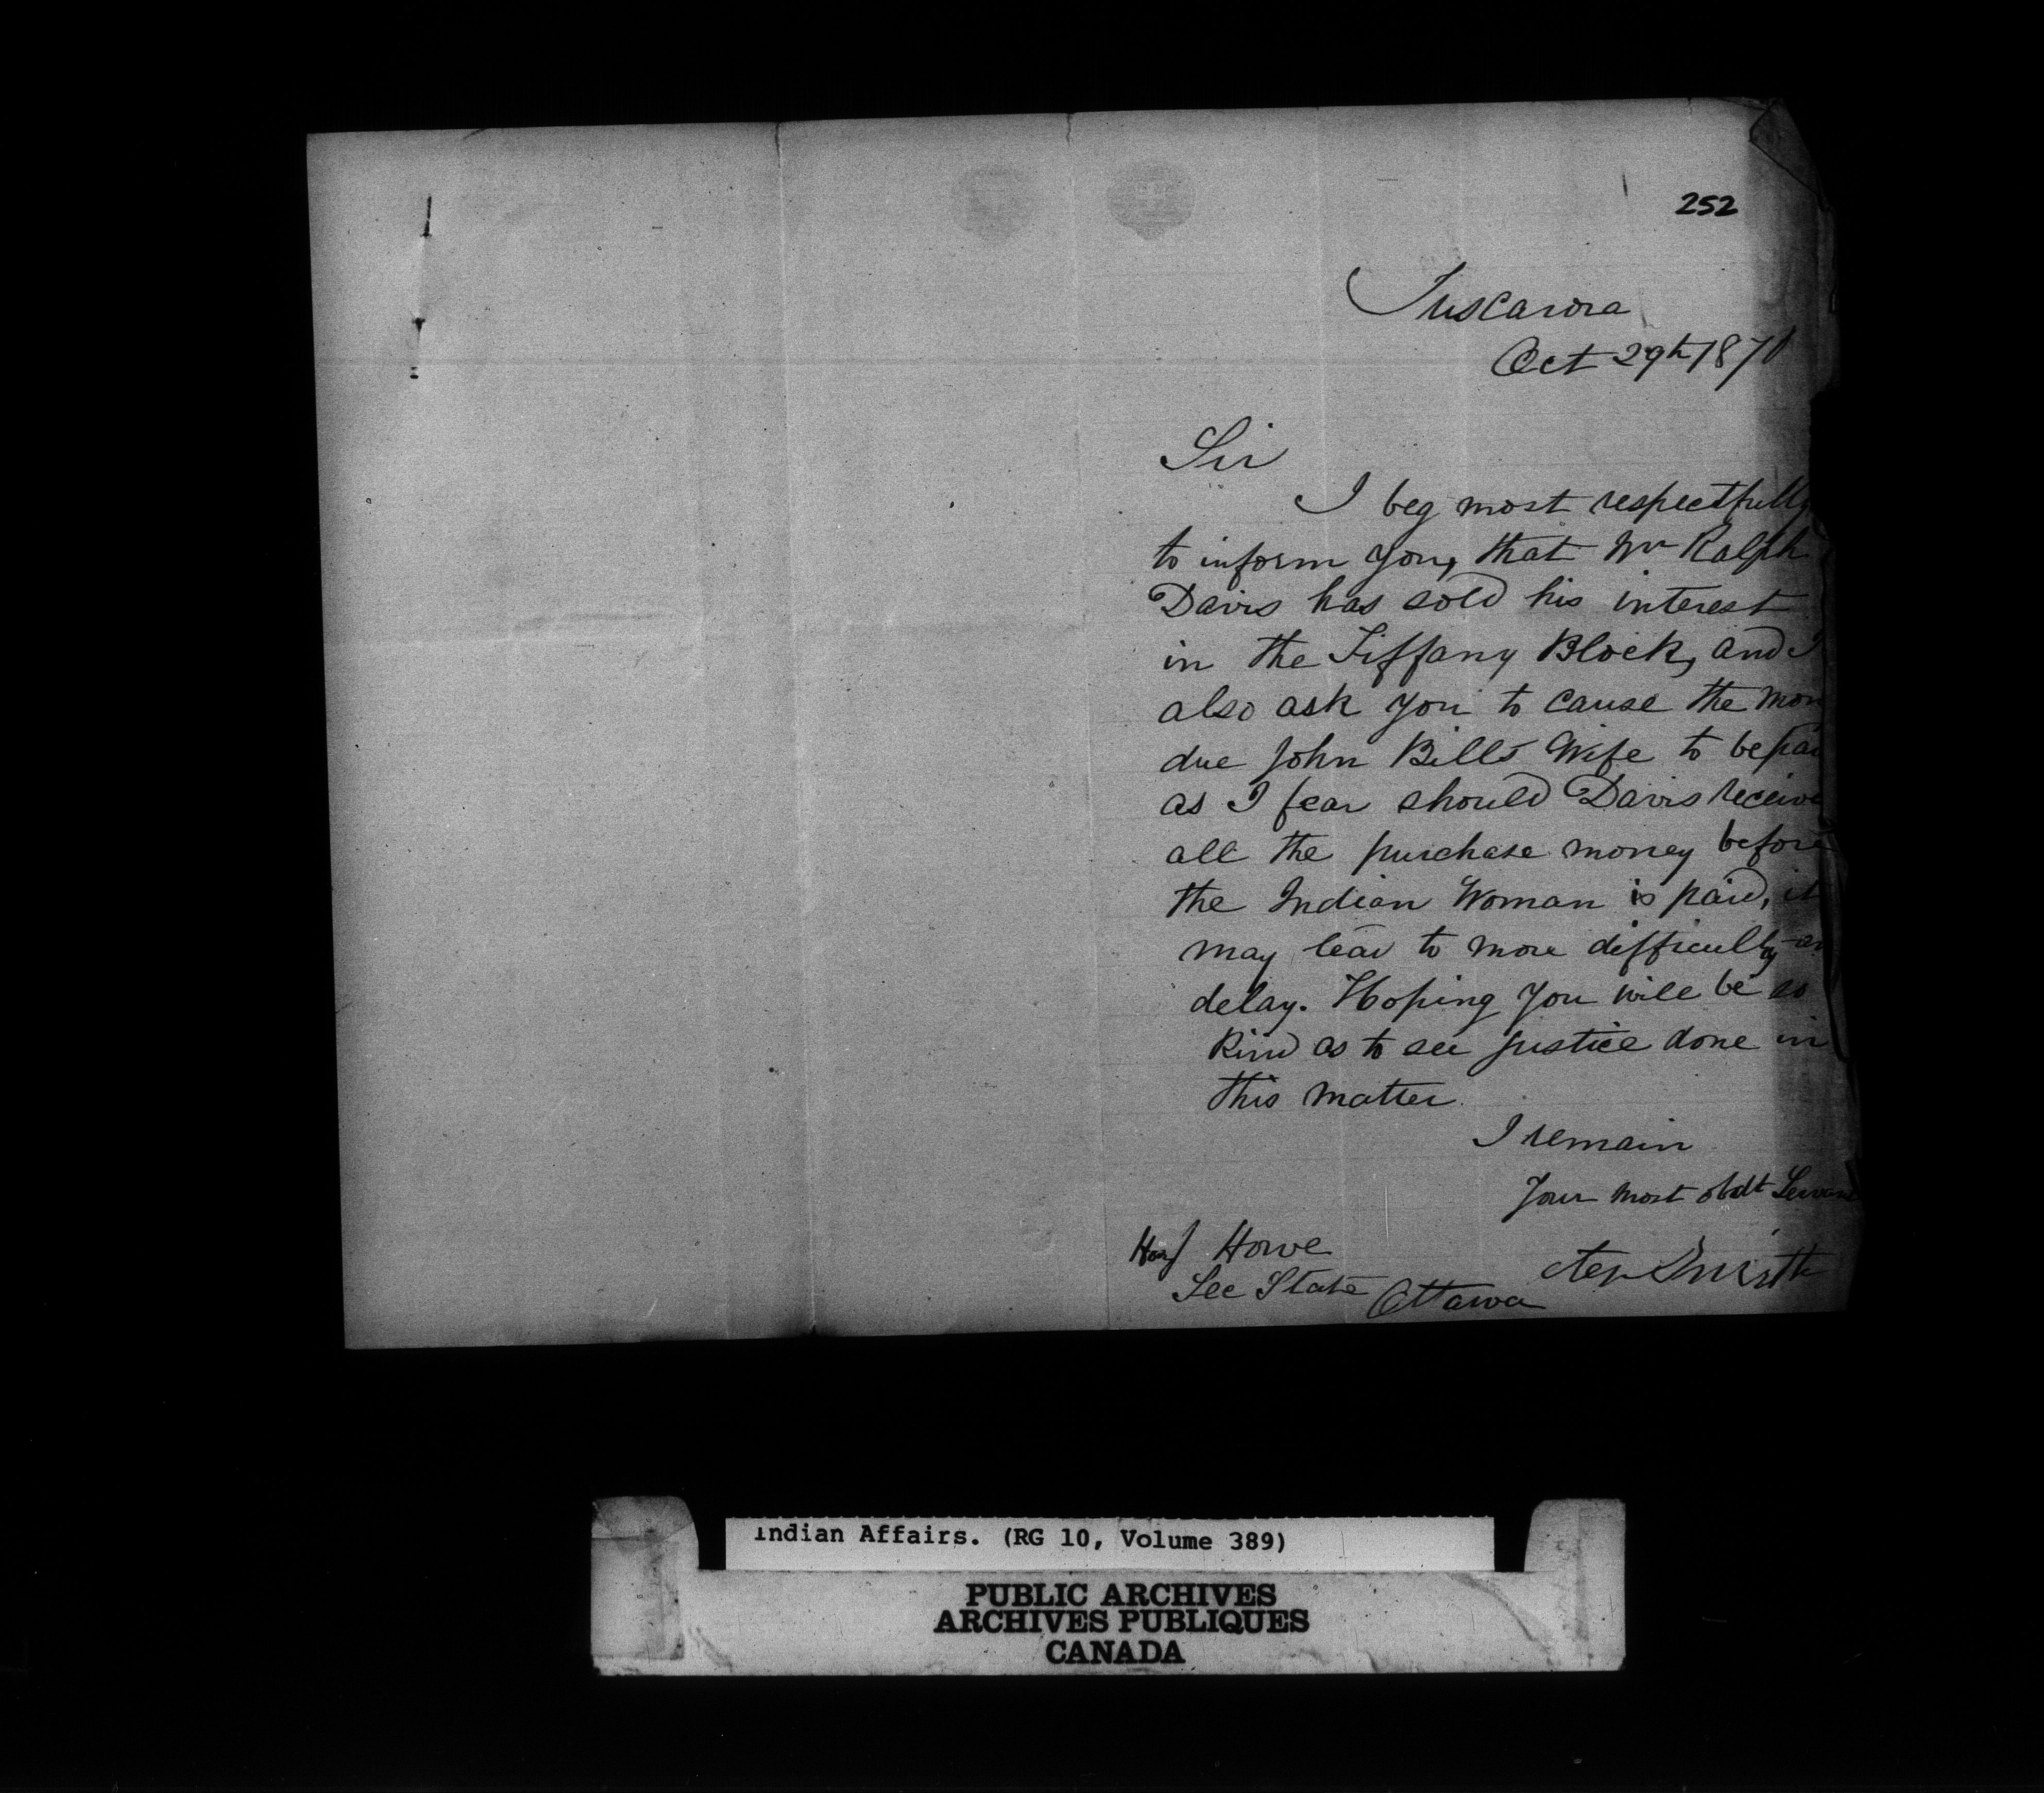 252
Tuscarora
Oct 29th 1870
Sir
I beg most respectfully
to inform you, that Wm Ralph
Davis has sold his interest
in the Tiffany Block, and I
also ask you to cause the mon
due John Bills Wife to be pai
as I fear should Davis receive
all the purchase money before
the Indian Woman is paid, it
may lead to more difficulty an
delay. Hoping you will be so
kind as to see justice done in
this matter.
I remain
Your most obdt Servant
Hon J Howe
Sec State Ottawa
Smith
Indian Affairs. (RG 10, Volume 389)
PUBLIC ARCHIVES
ARCHIVES PUBLIQUES
CANADA